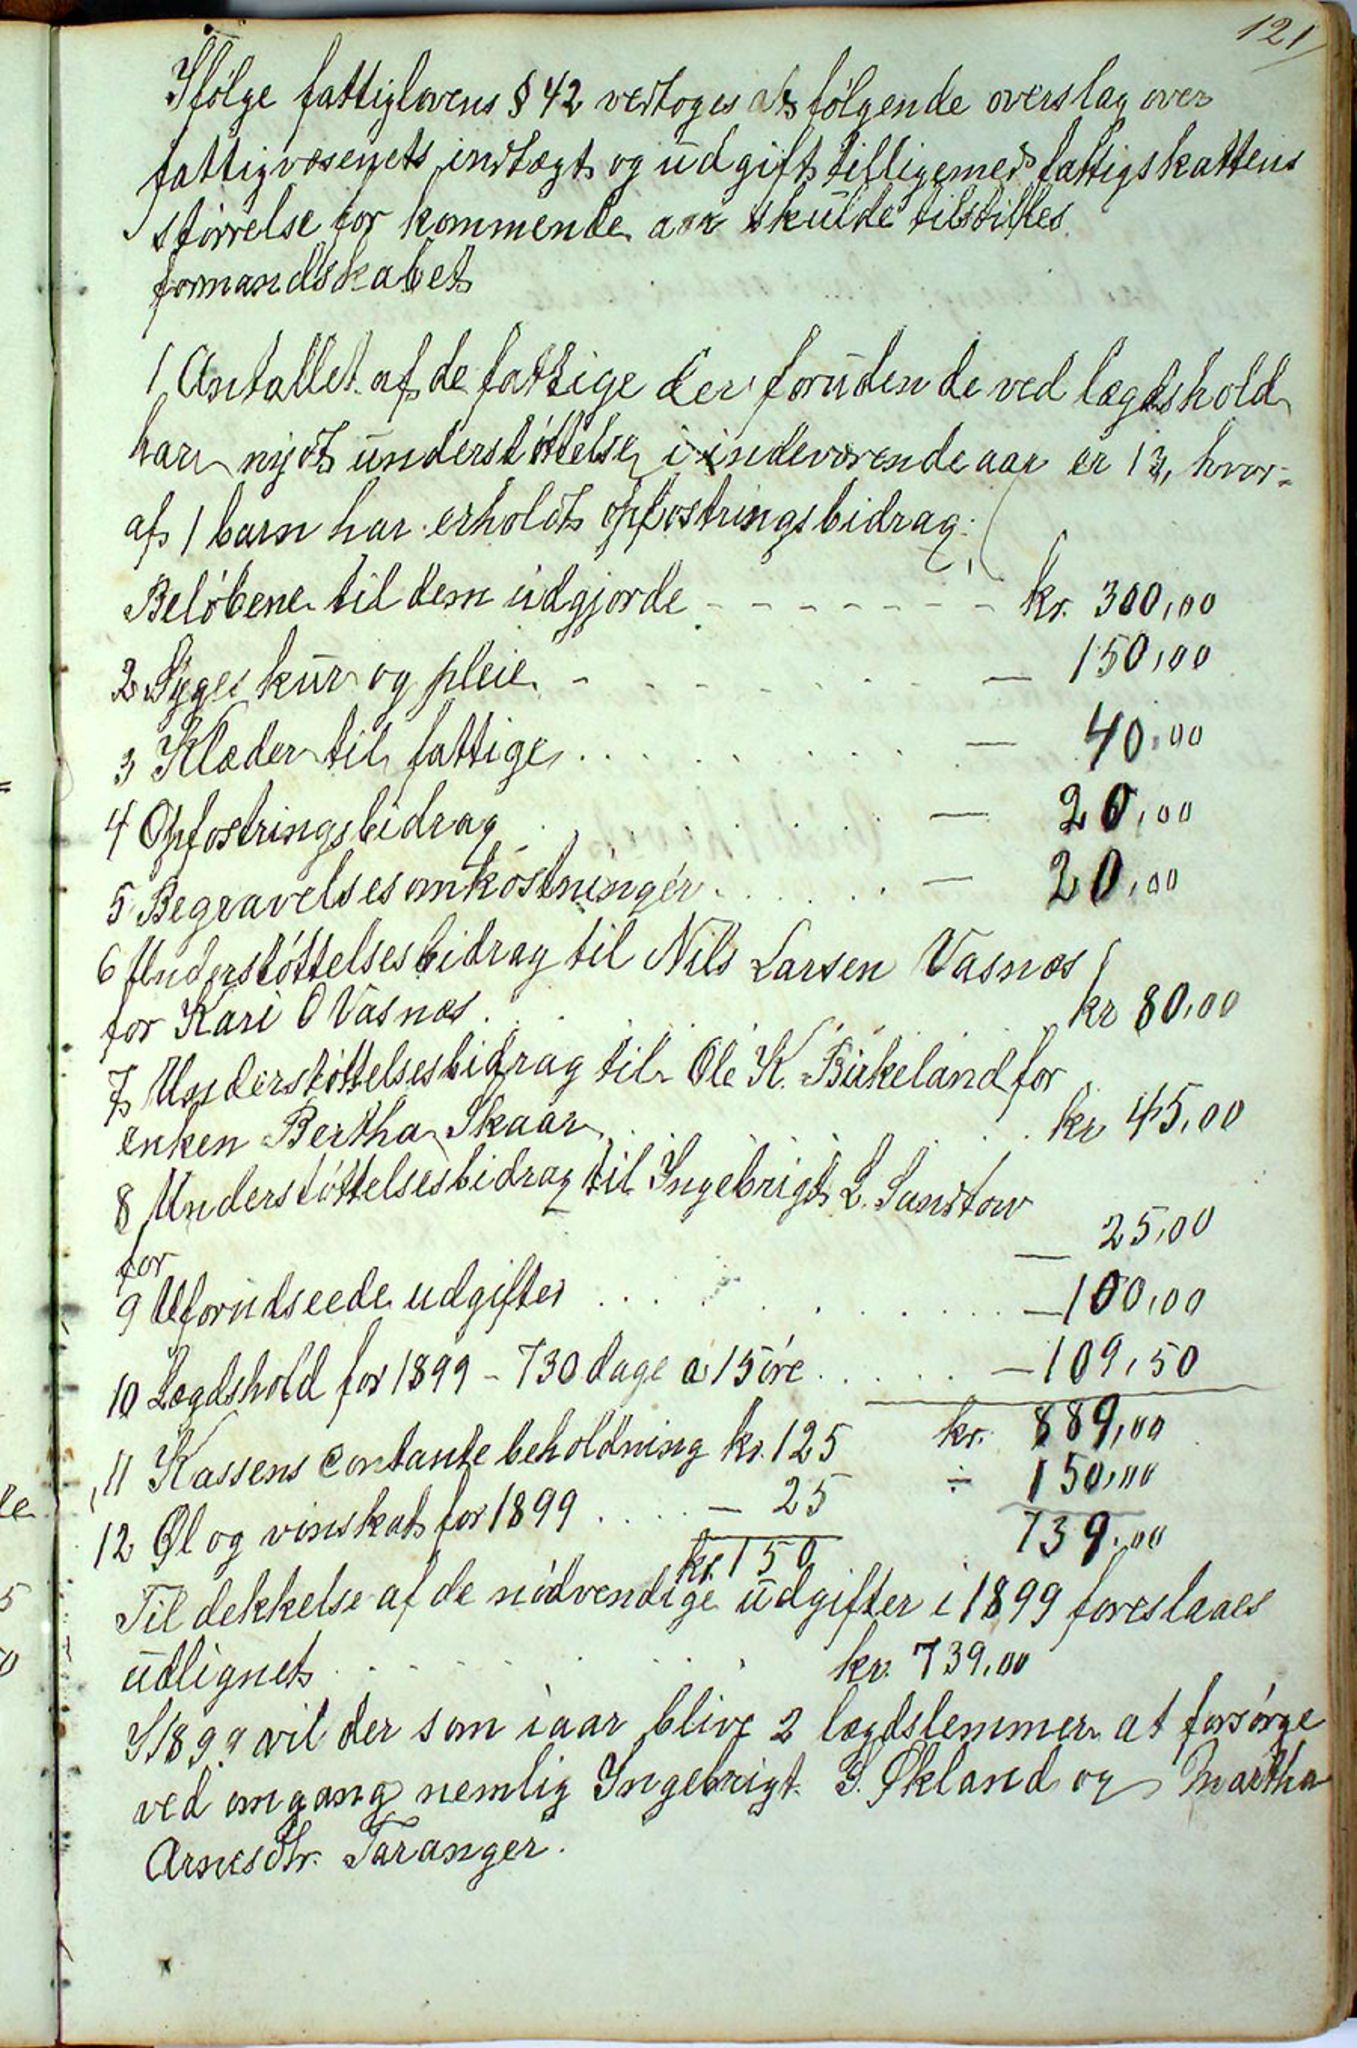 121
Ifølge fattiglovens § 42 vedtoges at følgende overslag over
fattigvæsenets indtægt og udgift tilligemed fattigskattens
størrelse for kommende aar skulde tilstilles
formandskabet
1 Antallet af de fattige der foruden de ved lægdshold
har nydt understøttelse i indeværende aar er 13, hvor-
af 1 barn har erholdt opfostringsbidrag.
Beløbene til dem udgjorde - - - - - - - kr. 300,00
2 Syges kur og pleie - - - - - - - — 150,00
3 Klæder til fattige . . . . . . . — 40,00
4 Opfostringsbidrag . . . . . . — 20,00
5 Begravelsesomkostninger . . . . — 20,00
6 Understøttelsesbidrag til Nils Larsen Vasnæs
for Kari O Vasnæs . . . . . . . kr 80,00
7 Understøttelsesbidrag til Ole K. Birkeland for
enken Bertha Skaar . . . . . . . kr 45,00
8 Understøttelsesbidrag til Ingebrigt L. Sandtow
for — 25,00
9 Uforudseede udgifter . . . . . . . — 100,00
10 Lægdshold for 1899 - 730 dage a 15 öre . . . . . — 109,50
11 Kassens contante beholdning kr. 125 kr. 889,00
12 Øl og vinskat for 1899 . . . . — 25 ÷ 150,00
kr. 150 739,00
Til dekkelse af de nødvendige udgifter i 1899 foreslaaes
udlignet . . . . . . . kr. 739,00
I 1899 vil der som iaar blive 2 lægdslemmer at forsørge
ved omgang nemlig Ingebrigt S. Økland og Martha
Arnesdtr. Taranger.